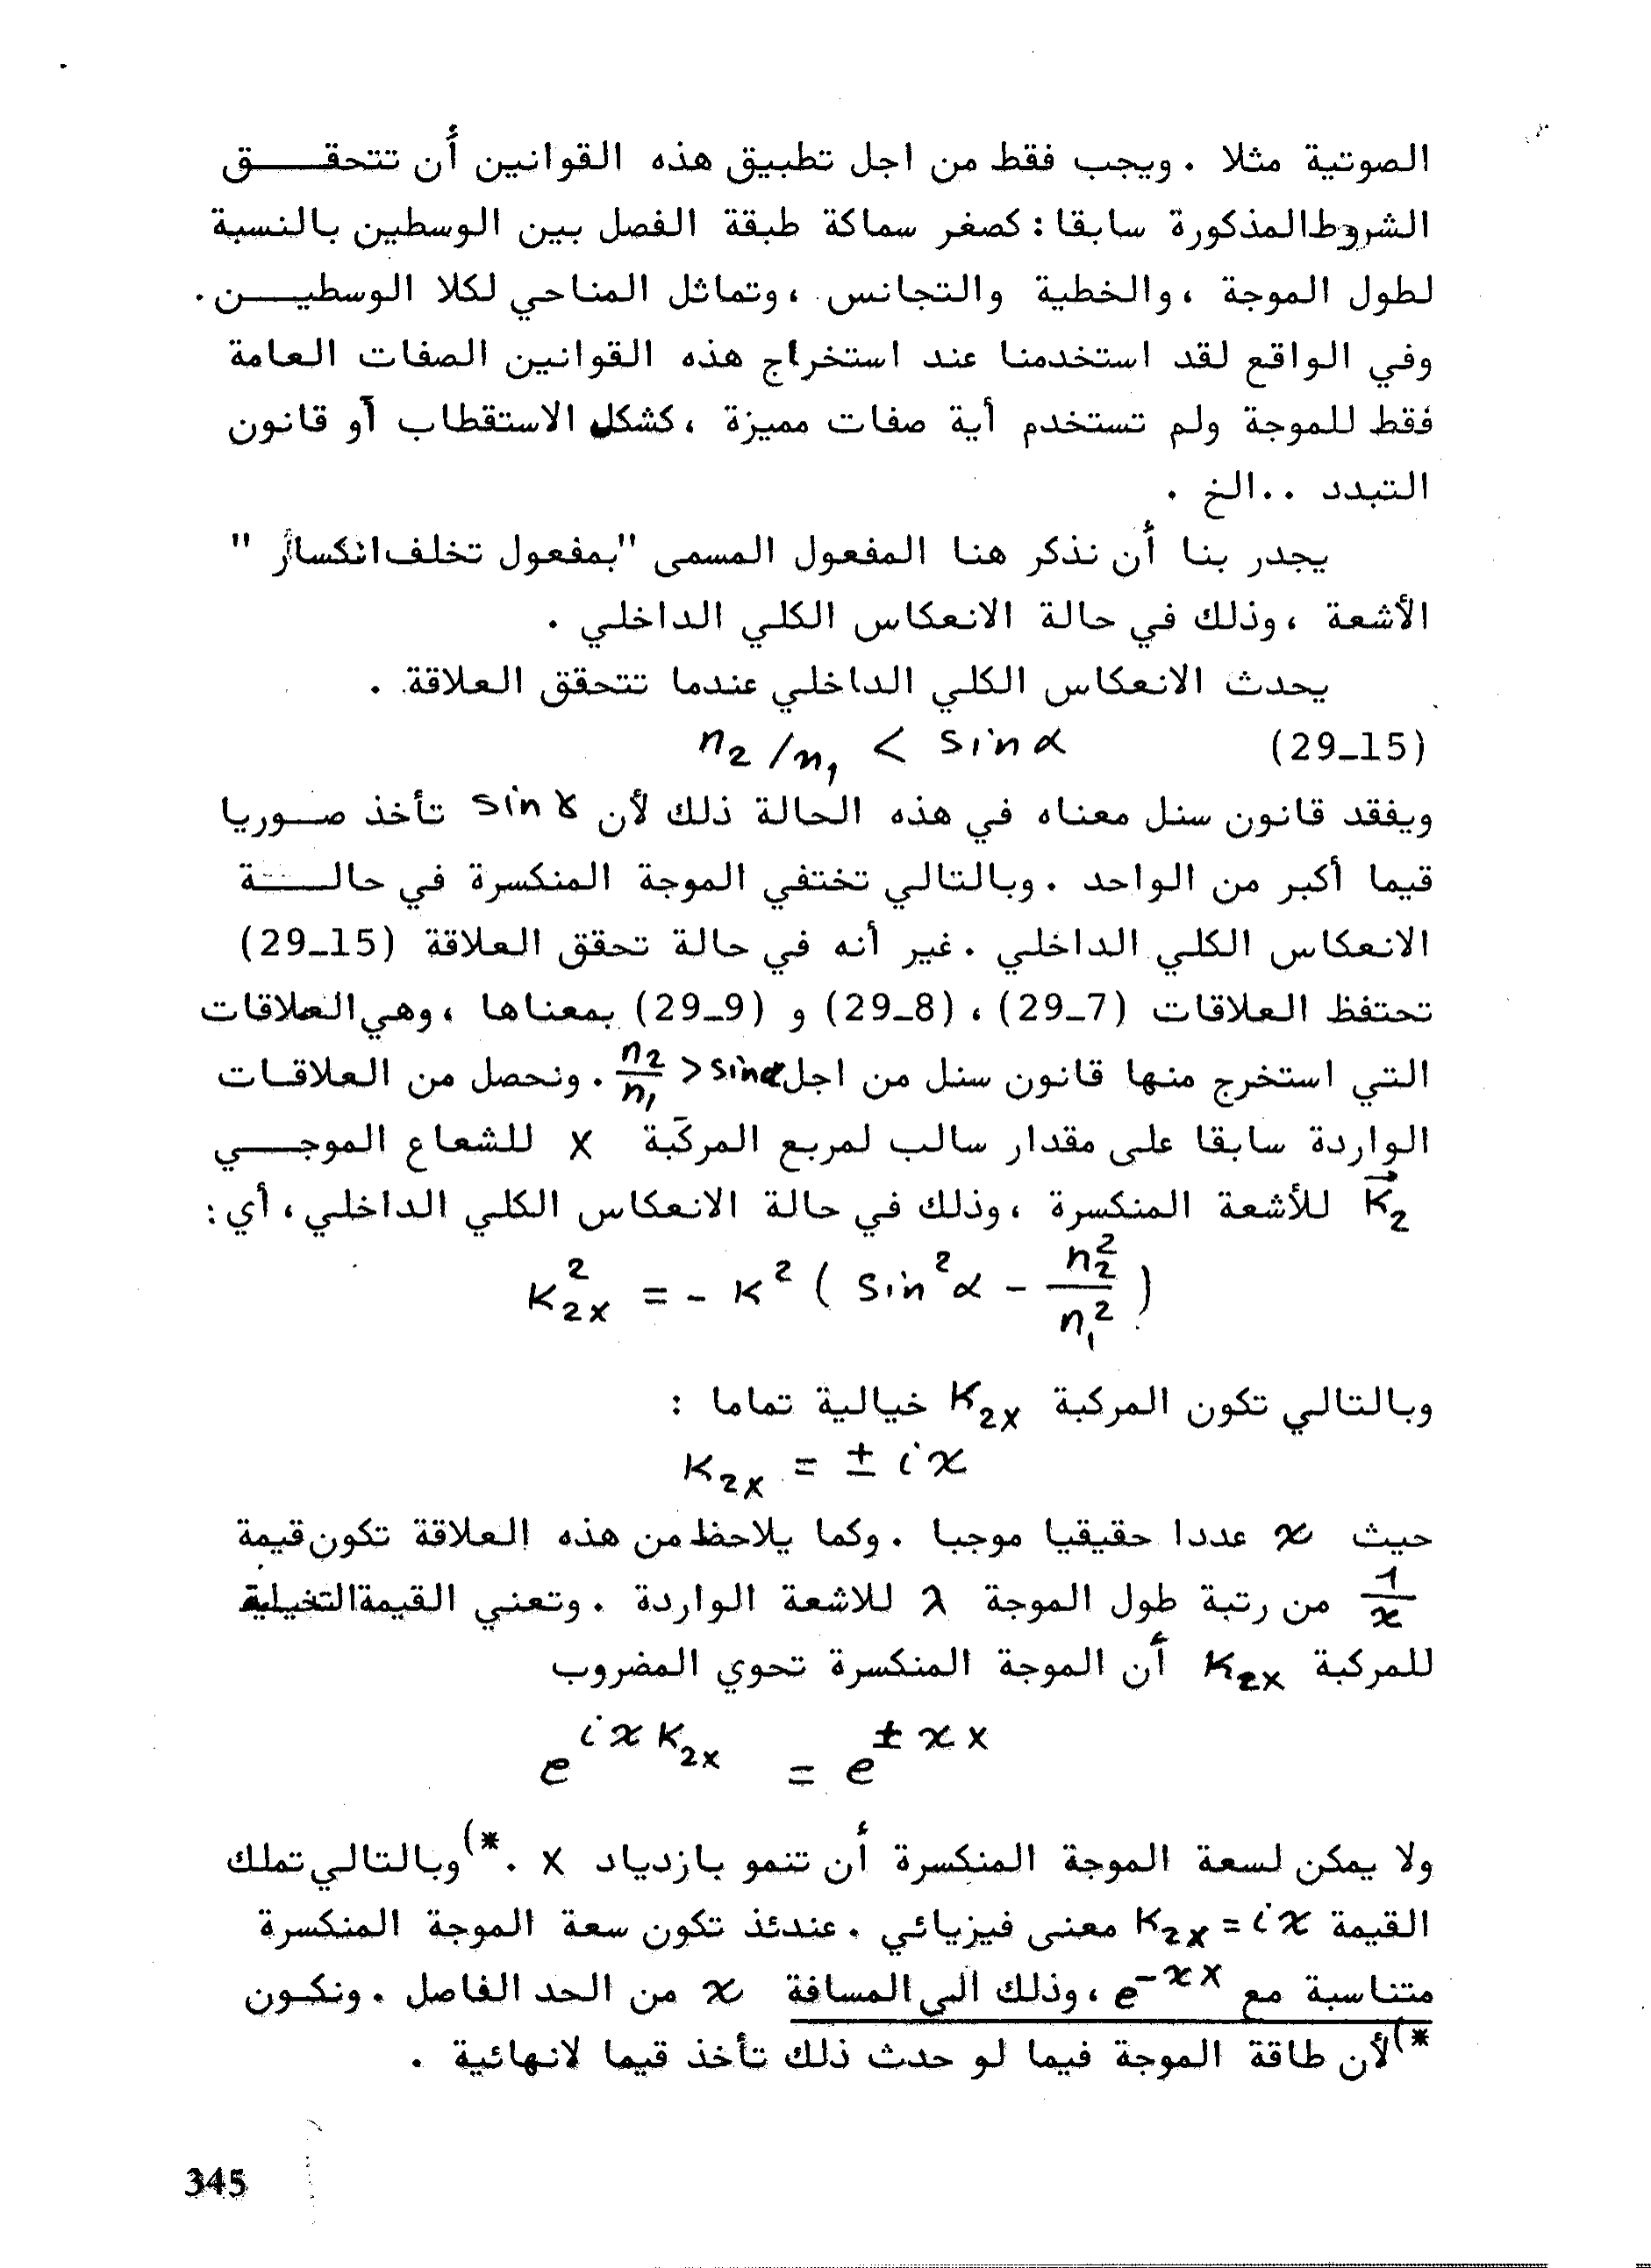 الصوتية مثلا . ويجب فقط من اجل تطبيق هذه القوانين أن تتحقق
الشروط المذكورة سابقا : كصغر سماكة طبقة الفصل بين الوسطين بالنسبة
لطول الموجة ، والخطية والتجانس ، وتماثل المناحي لكلا الوسطين .
وفي الواقع لقد استخدمنا عند استخراج هذه القوانين الصفات العامة
فقط للموجة ولم تستخدم أية صفات مميزة ، كشكل الاستقطاب أو قانون
التبدد ..الخ .
يجدر بنا أن نذكر هنا المفعول المسمى "بمفعول تخلف انكسار "
الأشعة ، وذلك في حالة الانعكاس الكلي الداخلي .
يحدث الانعكاس الكلي الداخلي عندما تتحقق العلاقة .
n₂/n₁ < sin α (29_15)
ويفقد قانون سنل معناه في هذه الحالة ذلك لأن sin ɣ تأخذ صوريا
قيما أكبر من الواحد . وبالتالي تختفي الموجة المنكسرة في حالة
الانعكاس الكلي الداخلي . غير أنه في حالة تحقق العلاقة (29_15)
تحتفظ العلاقات (29_7) ، (29_8) و (29_9) بمعناها ، وهي العلاقات
التي استخرج منها قانون سنل من اجل n₂/n₁ > sin α . ونحصل من العلاقات
الواردة سابقا على مقدار سالب لمربع المركبة x للشعاع الموجي
K⃗₂ للأشعة المنكسرة ، وذلك في حالة الانعكاس الكلي الداخلي ، أي :
K²₂ₓ = - K² ( sin²α - n₂²/n₁² )
وبالتالي تكون المركبة K₂ₓ خيالية تماما :
K₂ₓ = ± iϰ
حيث ϰ عددا حقيقيا موجبا . وكما يلاحظ من هذه العلاقة تكون قيمة
1/ϰ من رتبة طول الموجة λ للاشعة الواردة . وتعني القيمة التخيلية
للمركبة K₂ₓ أن الموجة المنكسرة تحوي المضروب
e^{iϰK₂ₓ} = e^{±ϰx}
ولا يمكن لسعة الموجة المنكسرة أن تنمو بازدياد x .*) وبالتالي تملك
القيمة K₂ₓ = iϰ معنى فيزيائي . عندئذ تكون سعة الموجة المنكسرة
متناسبة مع e^{-ϰx} ، وذلك الى المسافة ϰ من الحد الفاصل . ونكون
*) لأن طاقة الموجة فيما لو حدث ذلك تأخذ قيما لانهائية .
345